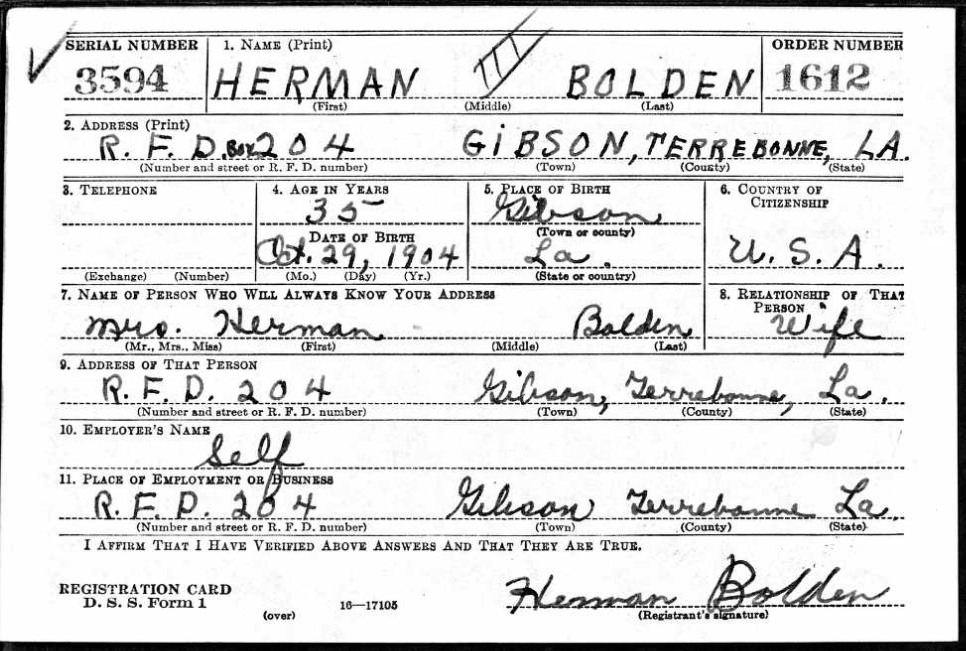 SERIAL NUMBER 1. NAME (Print) ORDER NUMBER
3594 HERMAN BOLDEN 1612
(First) (Middle) (Last)
2. ADDRESS (Print)
R. F. D. Box 204 GIBSON, TERREBONNE, LA.
(Number and street or R. F. D. number) (Town) (County) (State)
3. TELEPHONE 4. AGE IN YEARS 5. PLACE OF BIRTH 6. COUNTRY OF CITIZENSHIP
35 Gibson
DATE OF BIRTH (Town or county)
Oct. 29, 1904 La. U. S. A.
(Exchange) (Number) (Mo.) (Day) (Yr.) (State or country)
7. NAME OF PERSON WHO WILL ALWAYS KNOW YOUR ADDRESS 8. RELATIONSHIP OF THAT PERSON
Mrs. Herman Bolden Wife
(Mr., Mrs., Miss) (First) (Middle) (Last)
9. ADDRESS OF THAT PERSON
R. F. D. 204 Gibson, Terrebonne, La.
(Number and street or R. F. D. number) (Town) (County) (State)
10. EMPLOYER'S NAME
Self
11. PLACE OF EMPLOYMENT OR BUSINESS
R. F. D. 204 Gibson Terrebonne La.
(Number and street or R. F. D. number) (Town) (County) (State)
I AFFIRM THAT I HAVE VERIFIED ABOVE ANSWERS AND THAT THEY ARE TRUE.
REGISTRATION CARD Herman Bolden
D. S. S. Form 1 16—17105
(over) (Registrant's signature)